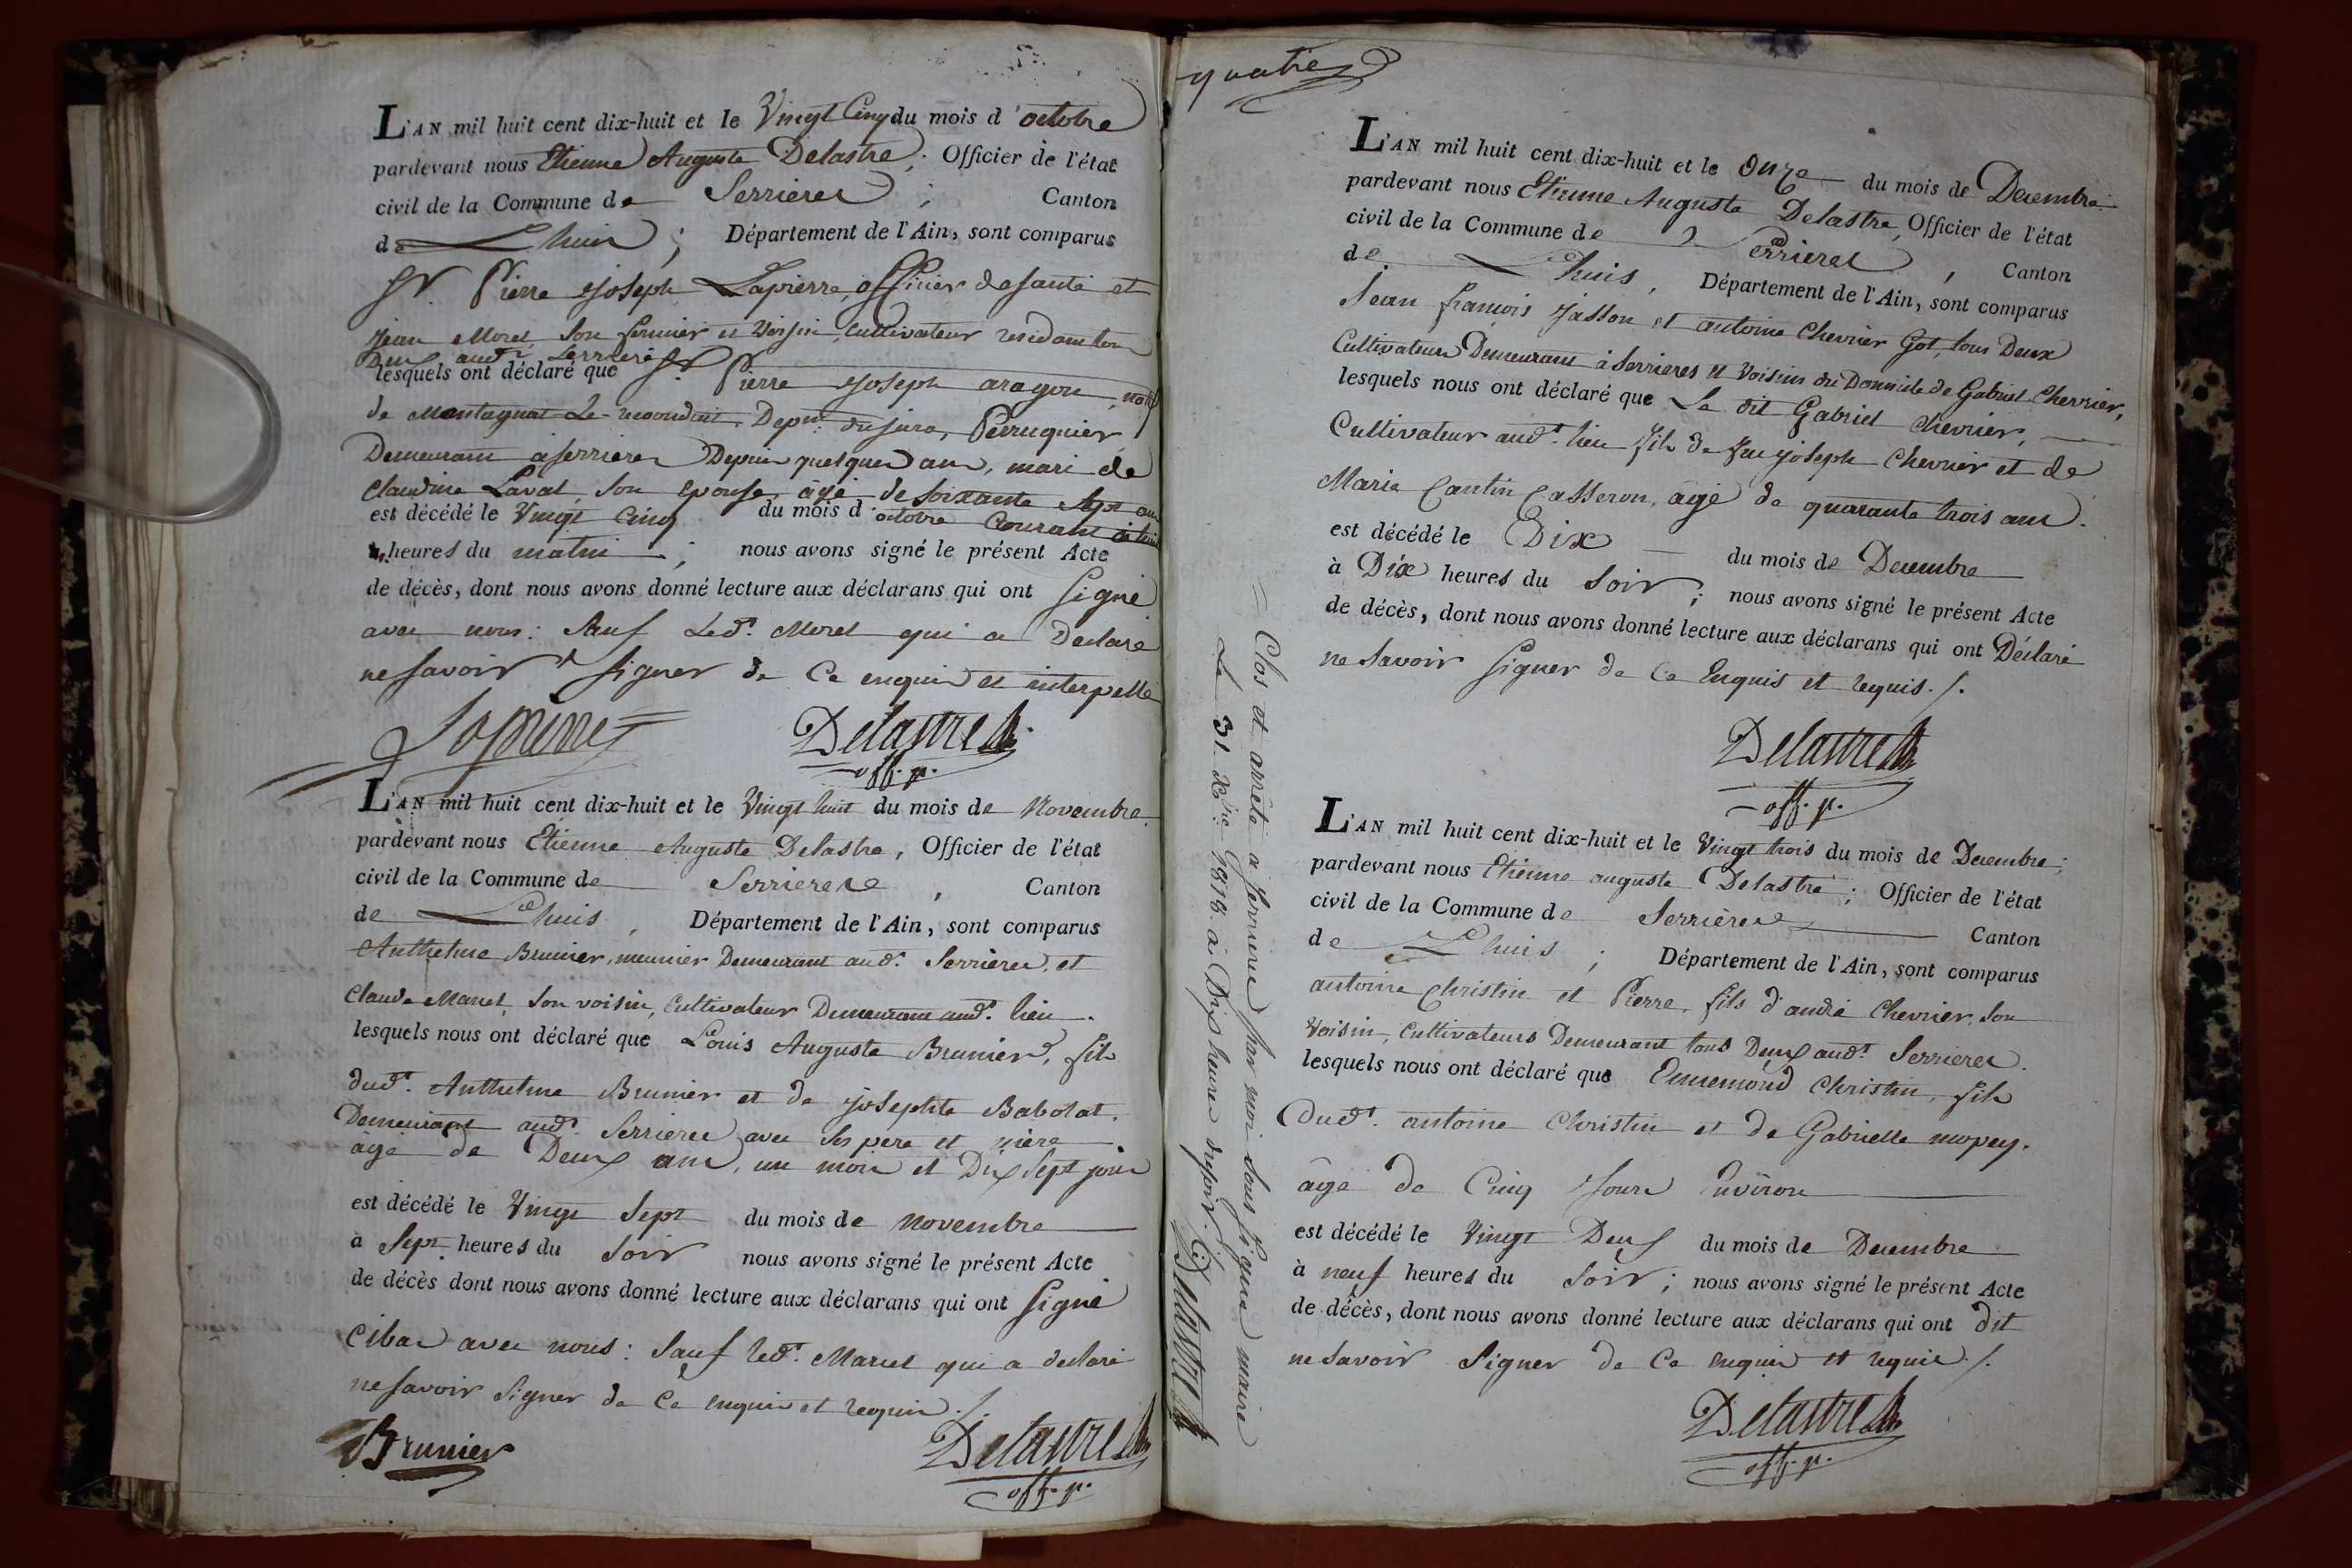 L'AN mil huit cent dix-huit et le Vingt Cinq du mois d'octobre
pardevant nous Etienne Auguste Delastre ; Officier de l'état
civil de la Commune de Serrieres ; Canton
de Lhuis ; Département de l'Ain, sont comparus
Sr. Pierre joseph Lapierre, officier de santé et
jean Morel, son fermier et voisin, cultivateur residant tous
Deux audt. Serrieres
lesquels ont déclaré que Sr. Pierre joseph aragon, natif
de Montagnat Le reconduit, Depmt. du jura, Perruquier
Demeurant à serrieres Depuis quelques ans, mari de
Claudine Laval, son epouse, âgé de soixante sept ans
est décédé le Vingt Cinq du mois d'octobre Courant à huit
heures du matin ; nous avons signé le présent Acte
de décès, dont nous avons donné lecture aux déclarans qui ont signé
avec nous : sauf Ledt. Morel qui a Déclaré
ne savoir signer de Ce enquis et interpellé
Lapierre Delastre
off. p.
L'AN mil huit cent dix-huit et le Vingt huit du mois de Novembre
pardevant nous Etienne Auguste Delastre, Officier de l'état
civil de la Commune de Serrieres, Canton
de Lhuis, Département de l'Ain, sont comparus
Anthelme Brunier, meunier Demeurant audt. Serrieres, et
Claude Marcel, son voisin, Cultivateur Demeurant audt. lieu.
lesquels nous ont déclaré que Louis Auguste Brunier, fils
dudt. Anthelme Brunier et de josephte Babolat,
Demeurant audt. Serrieres avec ses pere et mère
âgé de Deux ans, un mois et Dix sept jours
est décédé le Vingt Sept du mois de novembre
à Sept heures du Soir nous avons signé le présent Acte
de décès dont nous avons donné lecture aux déclarans qui ont signé
Cibas avec nous : Sauf ledt. Marcel qui a declaré
ne savoir signer de Ce enquis et requis ./.
Brunier Delastre
off. p.
quatre
L'AN mil huit cent dix-huit et le Onze du mois de Decembre
pardevant nous Etienne Auguste Delastre, Officier de l'état
civil de la Commune de Serrieres, Canton
de Lhuis, Département de l'Ain, sont comparus
Jean françois Jasson et antoine Chevrier Got, tous Deux
Cultivateurs Demeurant à Serrieres et Voisins du Domicile de Gabriel Chevrier,
lesquels nous ont déclaré que Le dit Gabriel Chevrier,
Cultivateur audt. lieu fils de feu joseph Chevrier et de
Marie Cantin Casseron, âgé de quarante trois ans.
est décédé le Dix du mois de Decembre
à Dix heures du Soir ; nous avons signé le présent Acte
de décès, dont nous avons donné lecture aux déclarans qui ont Déclaré
ne Savoir Signer de Ce Enquis et requis ./.
Delastre
off. p.
L'AN mil huit cent dix-huit et le Vingt trois du mois de Decembre ;
pardevant nous Etienne auguste Delastre ; Officier de l'état
civil de la Commune de Serrières Canton
de Lhuis ; Département de l'Ain, sont comparus
antoine Christin et Pierre, fils d'andré Chevrier, son
Voisin, Cultivateurs Demeurant tous Deux audt. Serrieres.
lesquels nous ont déclaré que Ennemond Christin, fils
Dudt. antoine Christin et de Gabrielle mopey.
âgé de Cinq Jours Environ
est décédé le Vingt Deux du mois de Decembre
à neuf heures du Soir ; nous avons signé le présent Acte
de décès, dont nous avons donné lecture aux déclarans qui ont dit
ne Savoir Signer de Ce enquis et requis ./.
Delastre
off. p.
= Clos et arrêté a serrieres par moi sous signé maire
Le 31 Xbre 1818. à Dix heures du soir ./. Delastre